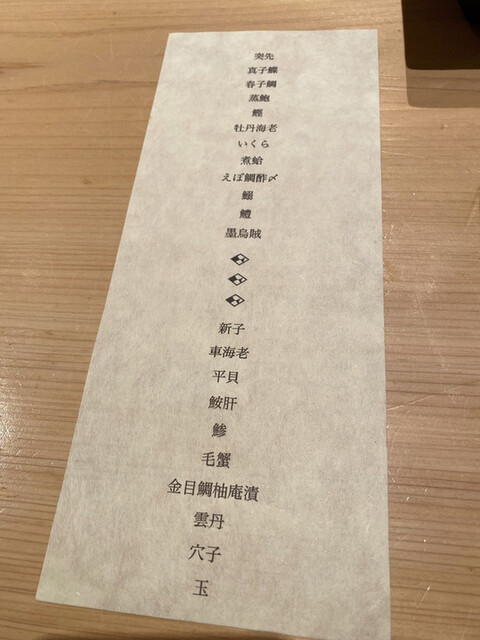 突先
真子鰈
春子鯛
蒸鮑
鰹
牡丹海老
いくら
煮蛤
えぼ鯛酢〆
鰯
鱧
墨烏賊
新子
車海老
平貝
鮟肝
鯵
毛蟹
金目鯛柚庵漬
雲丹
穴子
玉